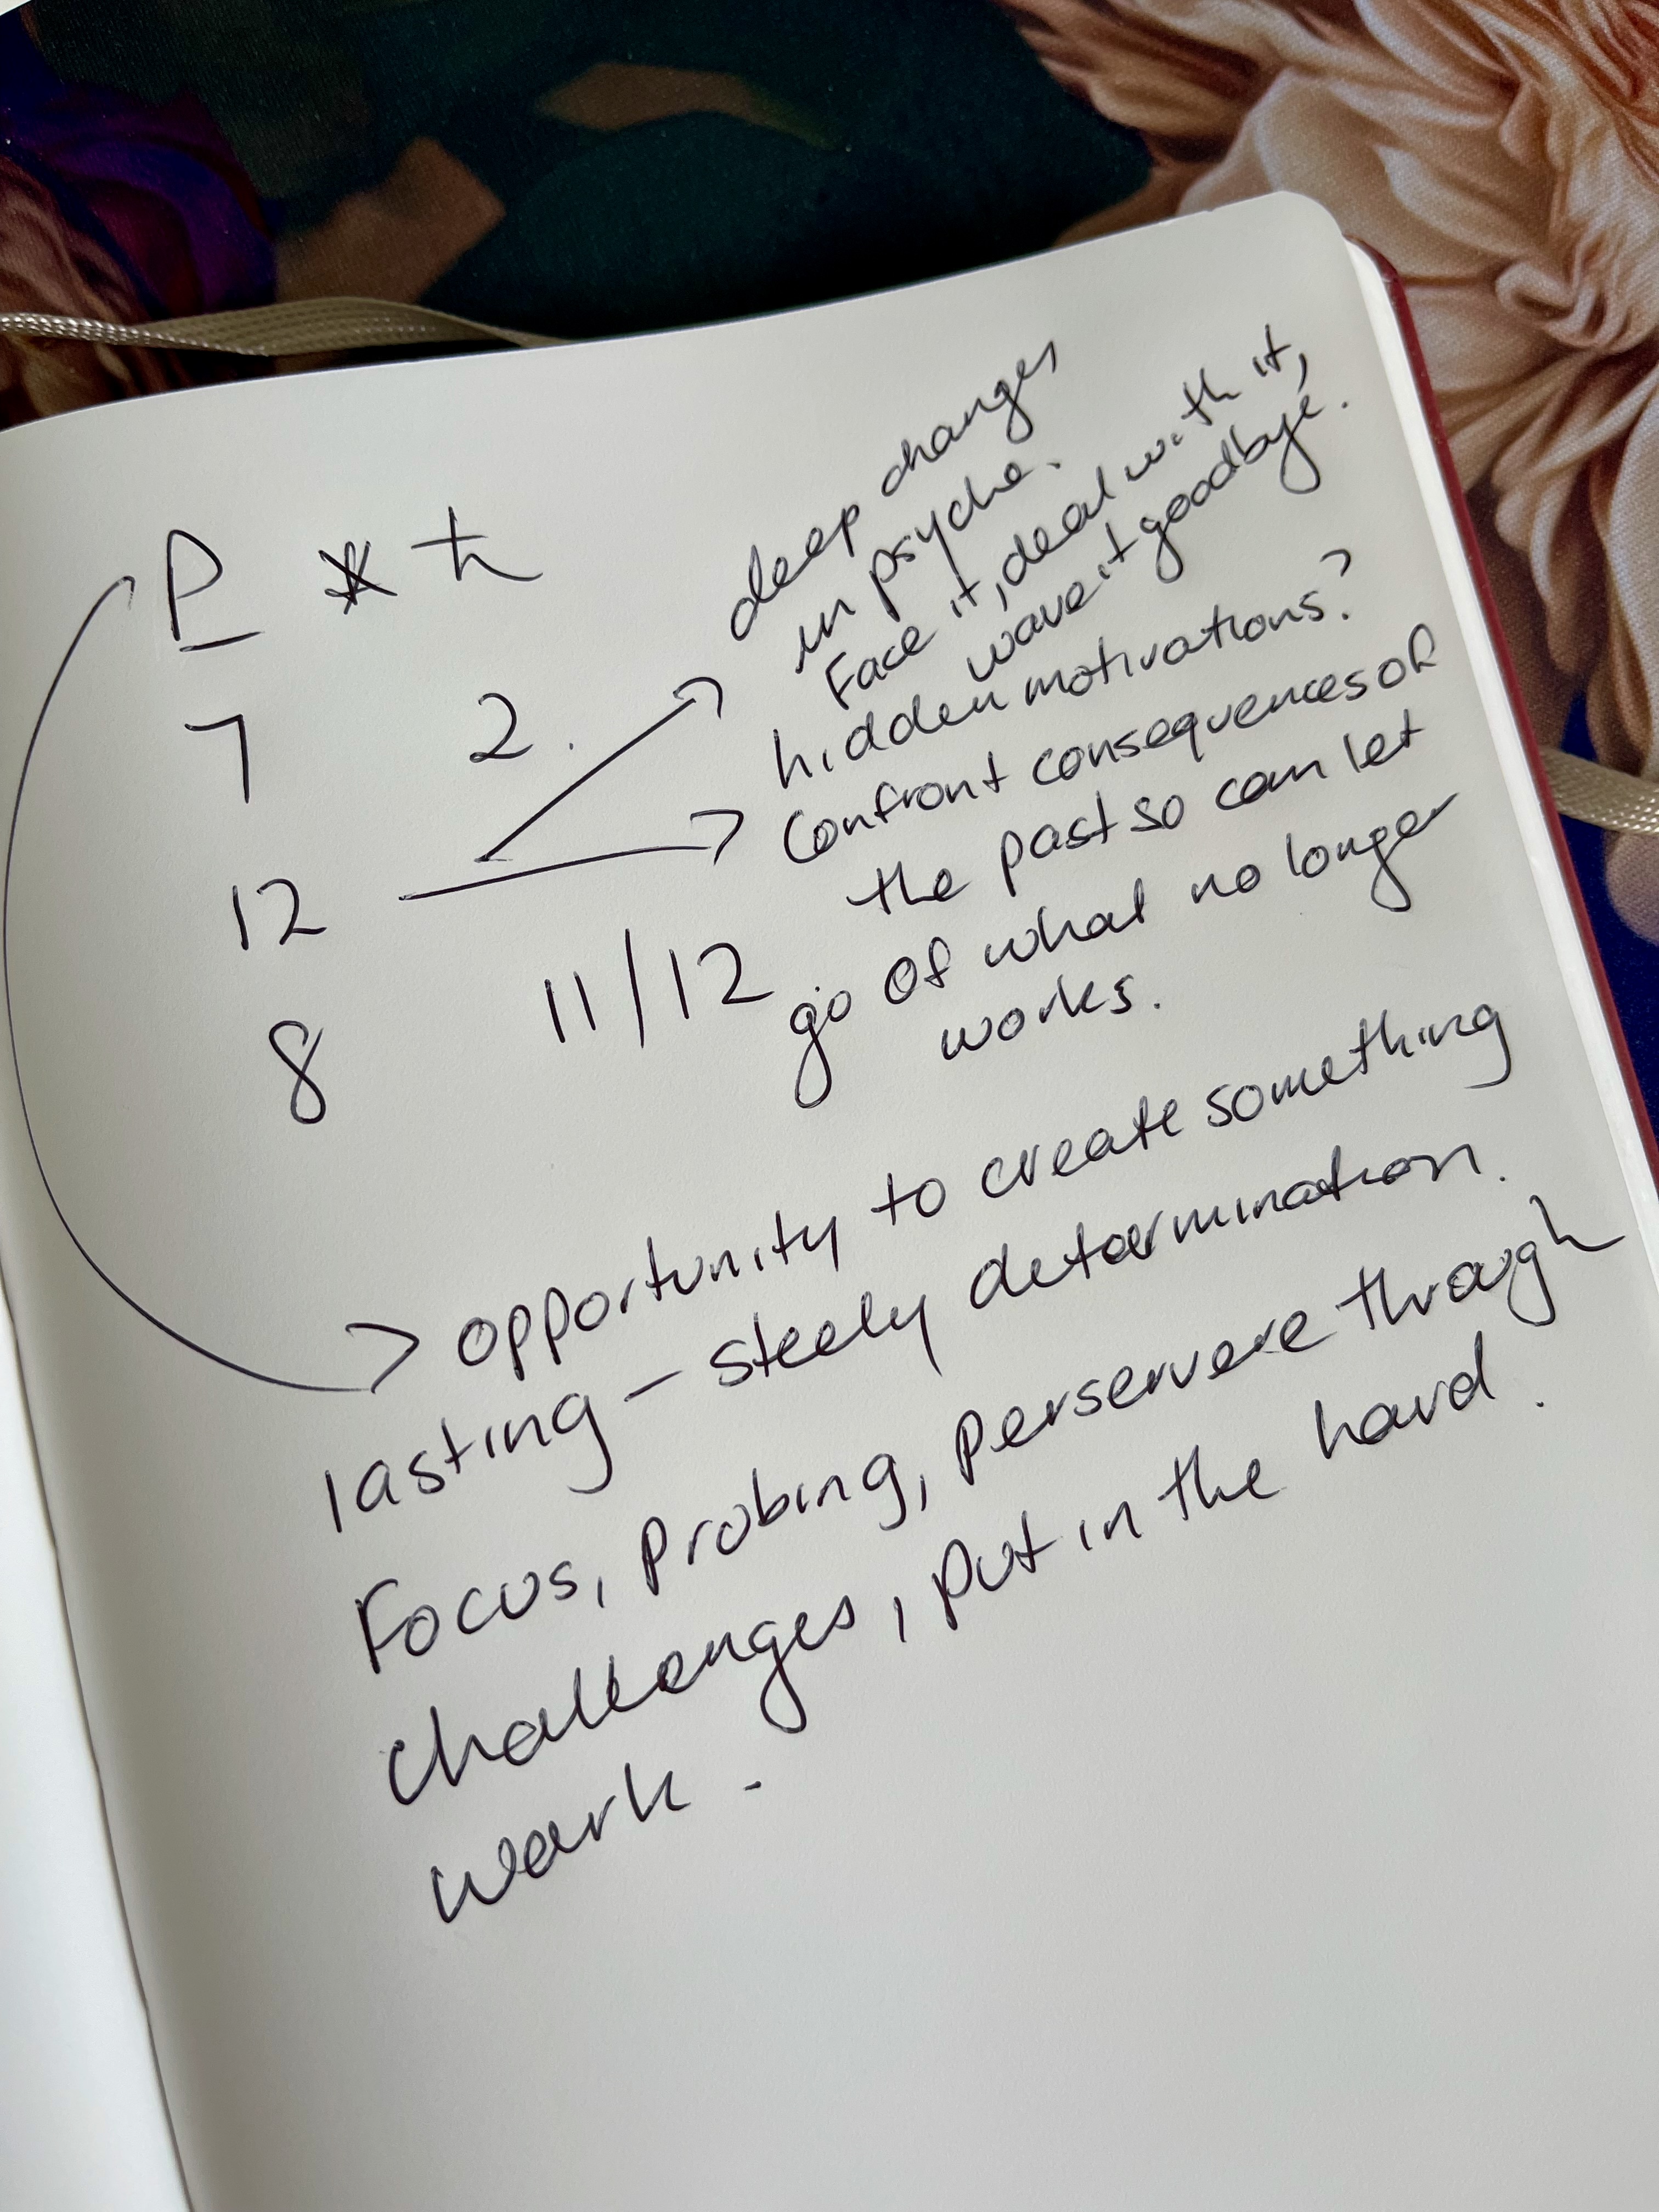 ♇ ⚹ ♄
deep changes
in psyche.
Face it, deal with it,
wave it goodbye.
7 2.
hidden motivations?
12
Confront consequences of
the past so can let
11/12 go of what no longer
works.
8
opportunity to create something
lasting - steely determination.
Focus, Probing, perservere through
challenges, put in the hard
work.